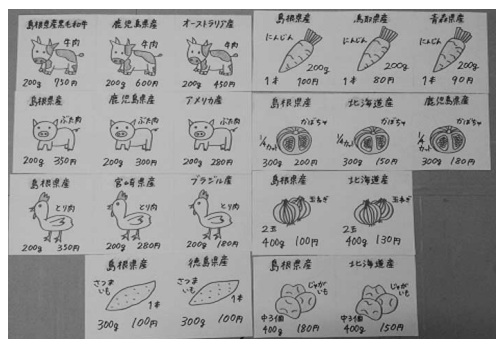 島根県産黒毛和牛
牛肉
200g 750円
鹿児島県産
牛肉
200g 600円
オーストラリア産
牛肉
200g 450円
島根県産
ぶた肉
200g 350円
鹿児島県産
ぶた肉
200g 300円
アメリカ産
ぶた肉
200g 280円
島根県産
とり肉
200g 350円
宮崎県産
とり肉
200g 280円
ブラジル産
とり肉
200g 180円
島根県産
さつま
いも
1本
300g 100円
徳島県産
さつま
いも
1本
300g 100円
島根県産
にんじん
200g
1本 100円
鳥取県産
にんじん
200g
1本 80円
青森県産
にんじん
200g
1本 90円
島根県産
かぼちゃ
1/4カット
300g 200円
北海道産
かぼちゃ
1/4カット
300g 150円
鹿児島県産
かぼちゃ
1/4カット
300g 180円
島根県産
玉ねぎ
2玉
400g 100円
北海道産
玉ねぎ
2玉
400g 130円
島根県産
じゃが
いも
中3個
400g 180円
北海道産
じゃが
いも
中3個
400g 150円